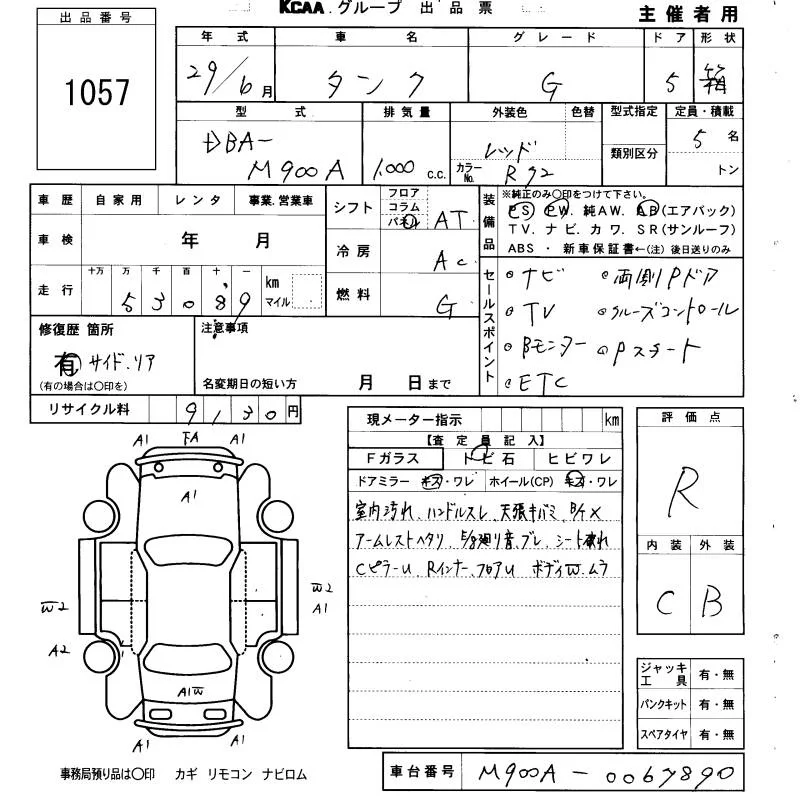 KCAA. グループ 出品票
主催者用
出品番号
1057
年式 車名 グレード ドア 形状
29/6月 タンク G 5 箱
型式 排気量 外装色 色替 型式指定 定員・積載
DBA- M900A 1,000 c.c. レッド カラーNo. R72 類別区分 5名 トン
車歴 自家用 レンタ 事業.営業車
車検 年 月
走行 十万 万 千 百 十 一
53089 km マイル
シフト フロア コラム パネル AT
冷房 Ac
燃料 G
装備品
※純正のみ〇印をつけて下さい。
PS. PW. 純AW. AB(エアバック)
TV. ナビ. カワ. SR(サンルーフ)
ABS ・ 新車保証書←(注) 後日送りのみ
セールスポイント
ナビ 両側Pドア
TV クルーズコントロール
Bモニター Pスタート
ETC
修復歴 箇所
有 サイド.リア
(有の場合は〇印を)
注意事項
名変期日の短い方 月 日まで
リサイクル料 9130円
現メーター指示 km
【査定員記入】
Fガラス トビ石 ヒビワレ
ドアミラー キズ・ワレ ホイール(CP) キズ・ワレ
室内汚れ、ハンドルスレ、天張キバミ
アームレストヘタリ 廻り音.ブレ、シート
CピラーU、Rインナー.フロアU ボデイW.ムラ
評価点
R
内装 外装
C B
ジャッキ 工具 有・無
パンクキット 有・無
スペアタイヤ 有・無
A1 FA A1
A1
W2
W2
A1
A2
A1W
A1 A1
事務局預り品は〇印 カギ リモコン ナビロム
車台番号 M900A-0067890